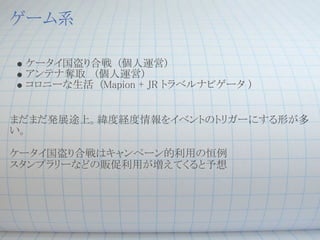 ゲーム系
● ケータイ国盗り合戦 (個人運営)
● アンテナ奪取 (個人運営)
● コロニーな生活 (Mapion + JRトラベルナビゲータ )
まだまだ発展途上。緯度経度情報をイベントのトリガーにする形が多
い。
ケータイ国盗り合戦はキャンペーン的利用の恒例
スタンプラリーなどの販促利用が増えてくると予想